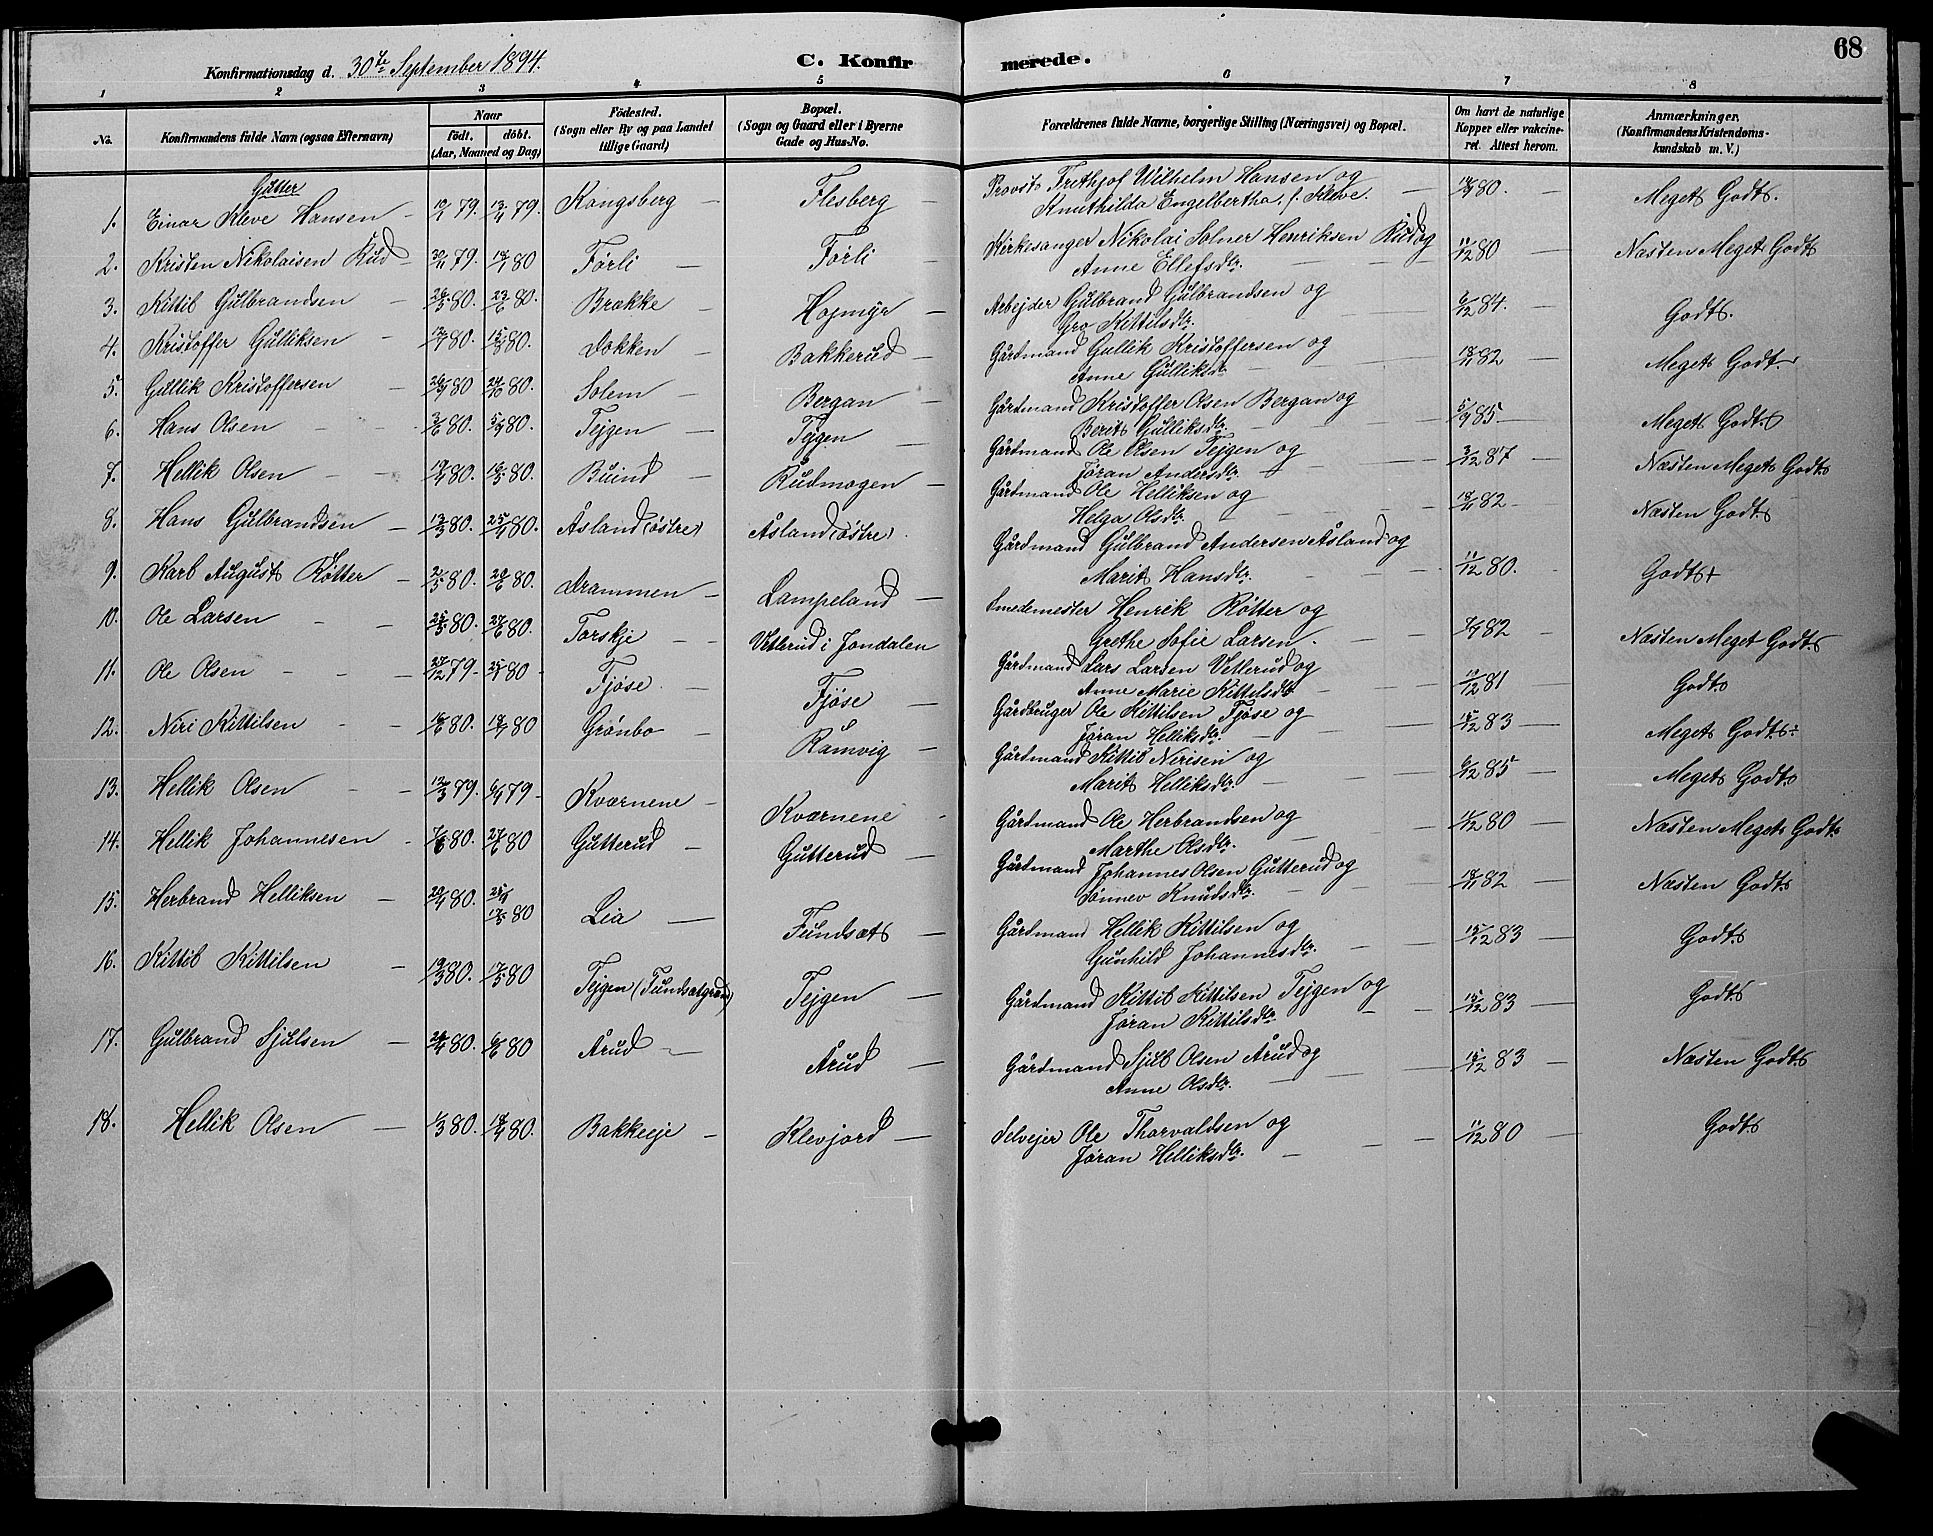 68
Konfirmationsdag d. 30te September 1894. C. Konfirmerede.
1 2 3 4 5 6 7 8
No. Konfirmandens fulde Navn (ogsaa Efternavn) Naar födt. döbt. (Aar, Maaned og Dag) Födested. (Sogn eller By og paa Landet tillige Gaard) Bopæl. (Sogn og Gaard eller i Byerne Gade og Hus-No. Forældrenes fulde Navne, borgerlige Stilling (Næringsvei) og Bopæl. Om havt de naturlige Kopper eller vakcineret. Attest herom. Anmærkninger. (Konfirmandens Kristendomskundskab m. V.)
Gutter
1. Einar Kleve Hansen 10/1 79. 13/4 79. Kongsberg Flesberg Provst Frithjof Wilhelm Hansen og 80. Meget Godt.
Knuthilda Engelbertha, f. Kleve.
2. Kristen Nikolaisen Rud 30/11 79. 18/1 80 Førli Førli Kirkesanger Nikolai Solner Henriksen Rud og 11/12 80 Næsten Meget Godt
Anne Ellefsdtr.
3. Kittil Gulbrandsen 26/3 80. 23/6 80. Brække Hojmyr Arbejder Gulbrand Gulbrandsen og 6/12 84. Godt.
Gro Kittilsdtr.
4. Kristoffer Gulliksen 80. 80. Dokken Bakkerud Gårdmand Gullik Kristoffersen og 18/11 82 Meget Godt
Anne Gulliksdtr
5. Gullik Kristoffersen 80 80. Solem Bergan Gårdmand Kristoffer Olsen Bergan og 5/9 85 Meget Godt
Berit Gulliksdtr.
6. Hans Olsen 3/6 80. 5/9 80. Tejgen Tejgen Gårdmand Ole Olsen Tejgen og 3/12 87 Næsten Meget Godt
Jøran Andersdtr.
7. Hellik Olsen 80. 16/5 80. Buind Rudmogen Gårdmand Ole Helliksen og 18/11 82 Næsten Godt
Helga Olsdtr.
8. Hans Gulbrandsen 13/3 80. 25/4 80. Åsland (østre) Åsland (østre). Gårdmand Gulbrand Andersen Åsland og 11/12 80. Godt+
Marit Hansdtr.
9. Karl August Rötter 2/5 80. 20/6 80. Drammen Lampeland Smedemester Henrik Rötter og 82 Næsten Meget Godt
Grethe Sofie Larsen.
10. Ole Larsen 25/5 80. 27/6 80. Torskje Vetlerud i Jondalen Gårdmand Lars Larsen Vetlerud og 11/12 81 Godt
Anne Marie Kittilsdtr
11. Ole Olsen 27/12 79 80 Fjøse Fjøse Gårdbruger Ole Kittilsen Fjøse og 15/12 83 Meget Godt÷
Jøran Helliksdtr.
12. Niri Kittilsen 80. 80 Grønbo Råmvig Gårdmand Kittil Nirisen og 6/12 85 Meget Godt
Marit Helliksdtr.
13. Hellik Olsen 12/3 79. 6/4 79 Kværnene Kværnene Gårdmand Ole Herbrandsen og 11/12 80 Næsten Meget Godt
Marthe Olsdtr.
14. Hellik Johannesen 80. 27/6 80 Gutterud Gutterud Gårdmand Johannes Olsen Gutterud og 18/11 82 Næsten Godt
Sønnev Knudsdtr.
15. Herbrand Helliksen 20/4 80. 25/4 17/5 80 Lia Fundsæt Gårdmand Hellik Kittilsen og 15/12 83 Godt
Gunhild Johannesdtr.
16. Kittil Kittilsen 19/3 80. 17/5 80 Tejgen (Fundsætgrænd) Tejgen Gårdmand Kittil Kittilsen Tejgen og 15/12 83 Godt
Jøran Kittilsdtr
17. Gulbrand Sjulsen 80. 6/6 80 Årud Årud Gårdmand Sjul Olsen Årud og 15/12 83 Næsten Godt
Anne Olsdtr.
18. Hellik Olsen 1/3 80. 18/4 80. Bakkeeje Klevjord Selvejer Ole Thorvaldsen og 11/12 80 Godt
Jøran Helliksdtr.